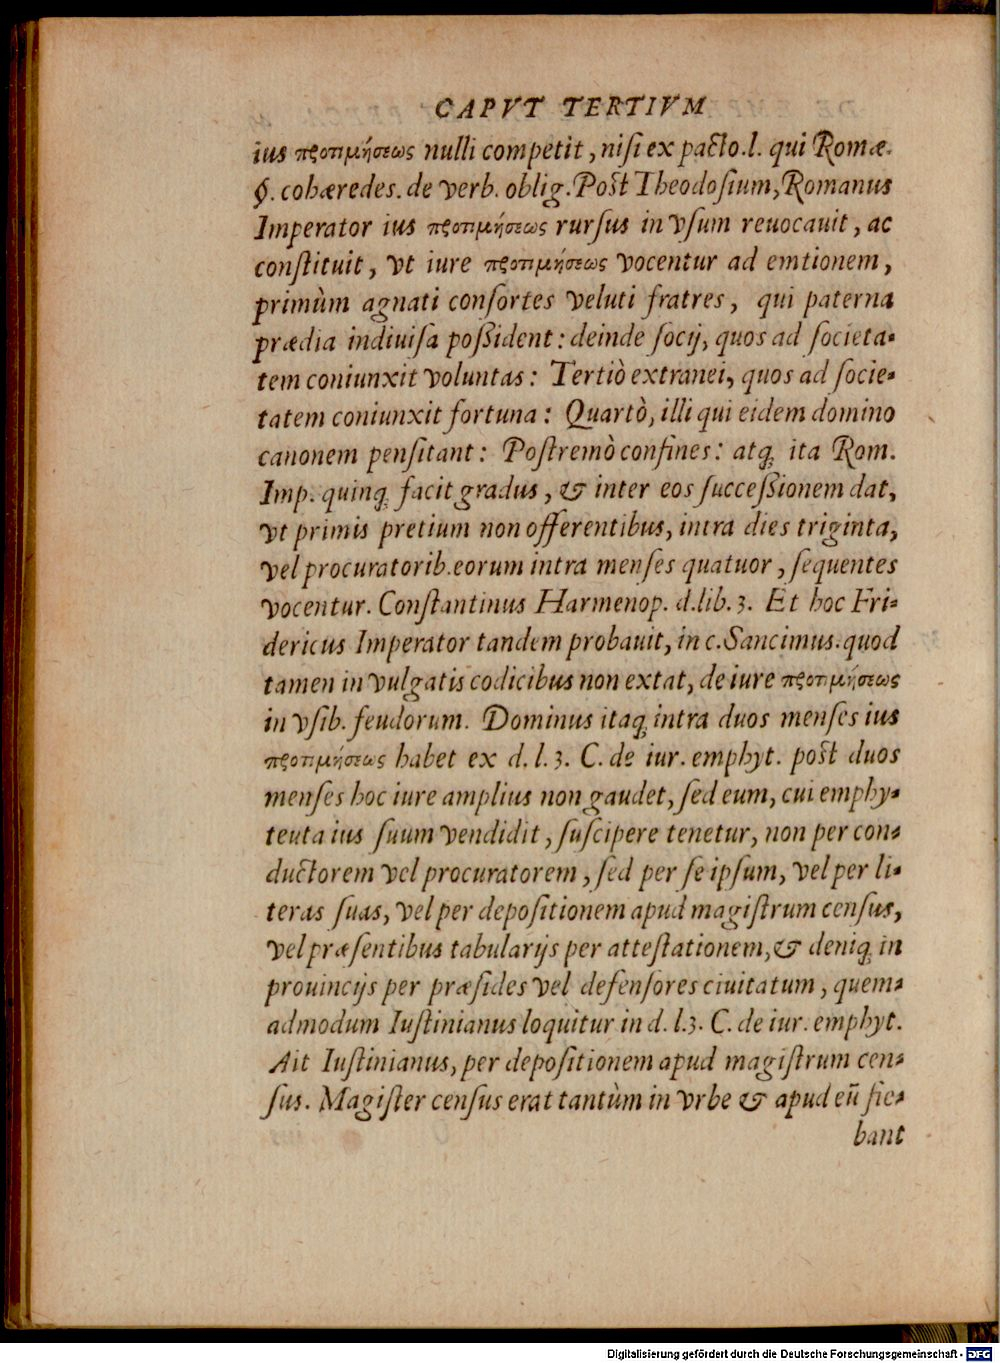 CAPVT TERTIVM
ius προτιμήσεως nulli competit, niſi ex pacto.l. qui Romæ.
§. cohæredes. de verb. oblig. Poſt Theodoſium, Romanus
Imperator ius προτιμήσεως rurſus in vſum reuocauit, ac
conſtituit, vt iure προτιμήσεως vocentur ad emtionem,
primùm agnati conſortes veluti fratres, qui paterna
prædia indiuiſa poßident: deinde ſocij, quos ad ſocieta-
tem coniunxit voluntas: Tertiò extranei, quos ad ſocie-
tatem coniunxit fortuna: Quartò, illi qui eidem domino
canonem penſitant: Poſtremò confines: atq; ita Rom.
Imp. quinq; facit gradus, & inter eos ſucceßionem dat,
vt primis pretium non offerentibus, intra dies triginta,
vel procuratorib. eorum intra menſes quatuor, ſequentes
vocentur. Conſtantinus Harmenop. d. lib. 3. Et hoc Fri-
dericus Imperator tandem probauit, in c. Sancimus. quod
tamen in vulgatis codicibus non extat, de iure προτιμήσεως
in vſib. feudorum. Dominus itaq; intra duos menſes ius
προτιμήσεως habet ex d. l. 3. C. de iur. emphyt. poſt duos
menſes hoc iure amplius non gaudet, ſed eum, cui emphy-
teuta ius ſuum vendidit, ſuſcipere tenetur, non per con-
ductorem vel procuratorem, ſed per ſe ipſum, vel per li-
teras ſuas, vel per depoſitionem apud magiſtrum cenſus,
vel præſentibus tabularijs per atteſtationem, & deniq; in
prouincijs per præſides vel defenſores ciuitatum, quem-
admodum Iuſtinianus loquitur in d. l. 3. C. de iur. emphyt.
Ait Iuſtinianus, per depoſitionem apud magiſtrum cen-
ſus. Magiſter cenſus erat tantùm in vrbe & apud eū fie-
bant
Digitalisierung gefördert durch die Deutsche Forschungsgemeinschaft - DFG